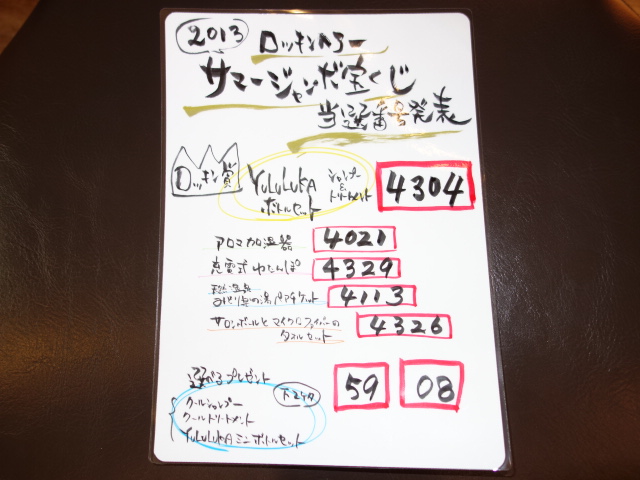 2013
ロッキンカラー
サマージャンボ宝くじ
当選番号発表
ロッキン賞
YULULUKA
ボトルセット
シャンプー
&
トリートメント
4304
アロマ加湿器 4021
充電式ゆたんぽ 4329
の湯ペアチケット 4113
サロンボールとマイクロファイバーの
タオルセット
4326
選べるプレゼント
下2ケタ
59 08
クールシャンプー
クールトリートメント
YULULUKAミニボトルセット